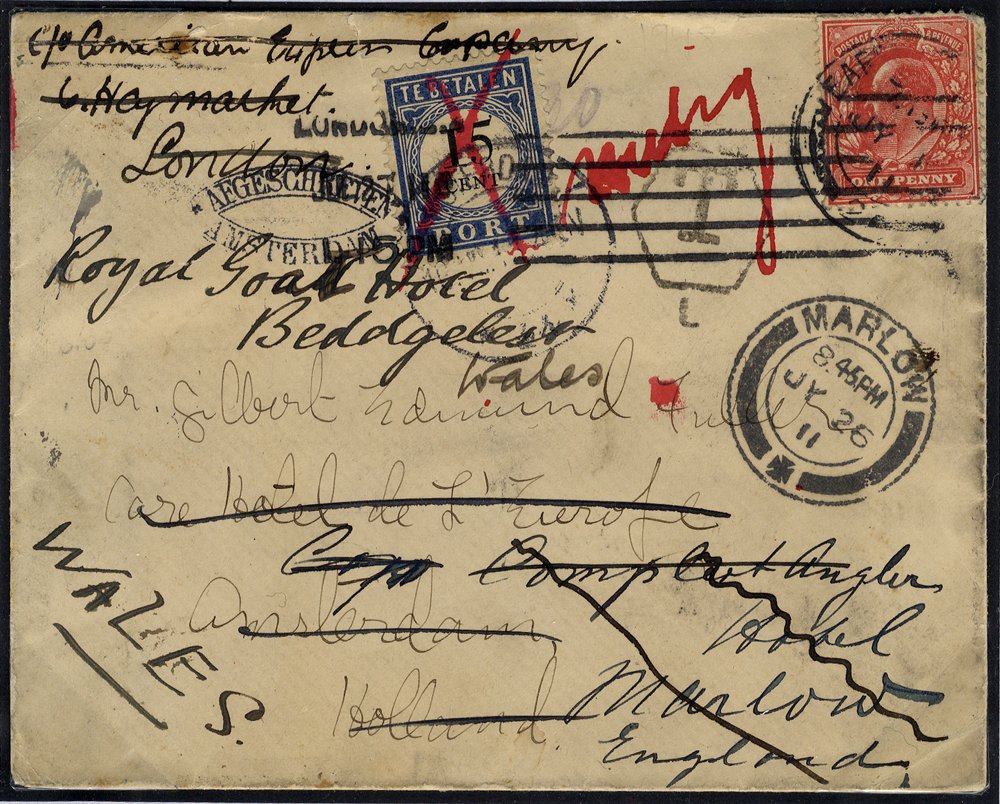 c/o American Express Company.
6. Haymarket.
London.
Royal Goat Hotel
Beddgelert
Wales
Mr. Gilbert Edmund Fuller
Care Hotel de L'Europe
Amsterdam
Holland
c/o Compleat Angler
Hotel
Marlow
England
WALES.
TE BETALEN
15
CENT
PORT
AFGESCHREVEN
AMSTERDAM
LONDON
4.15PM
T
L
POSTAGE & REVENUE
ONE PENNY
MARLOW
8.45PM
JY 26
11